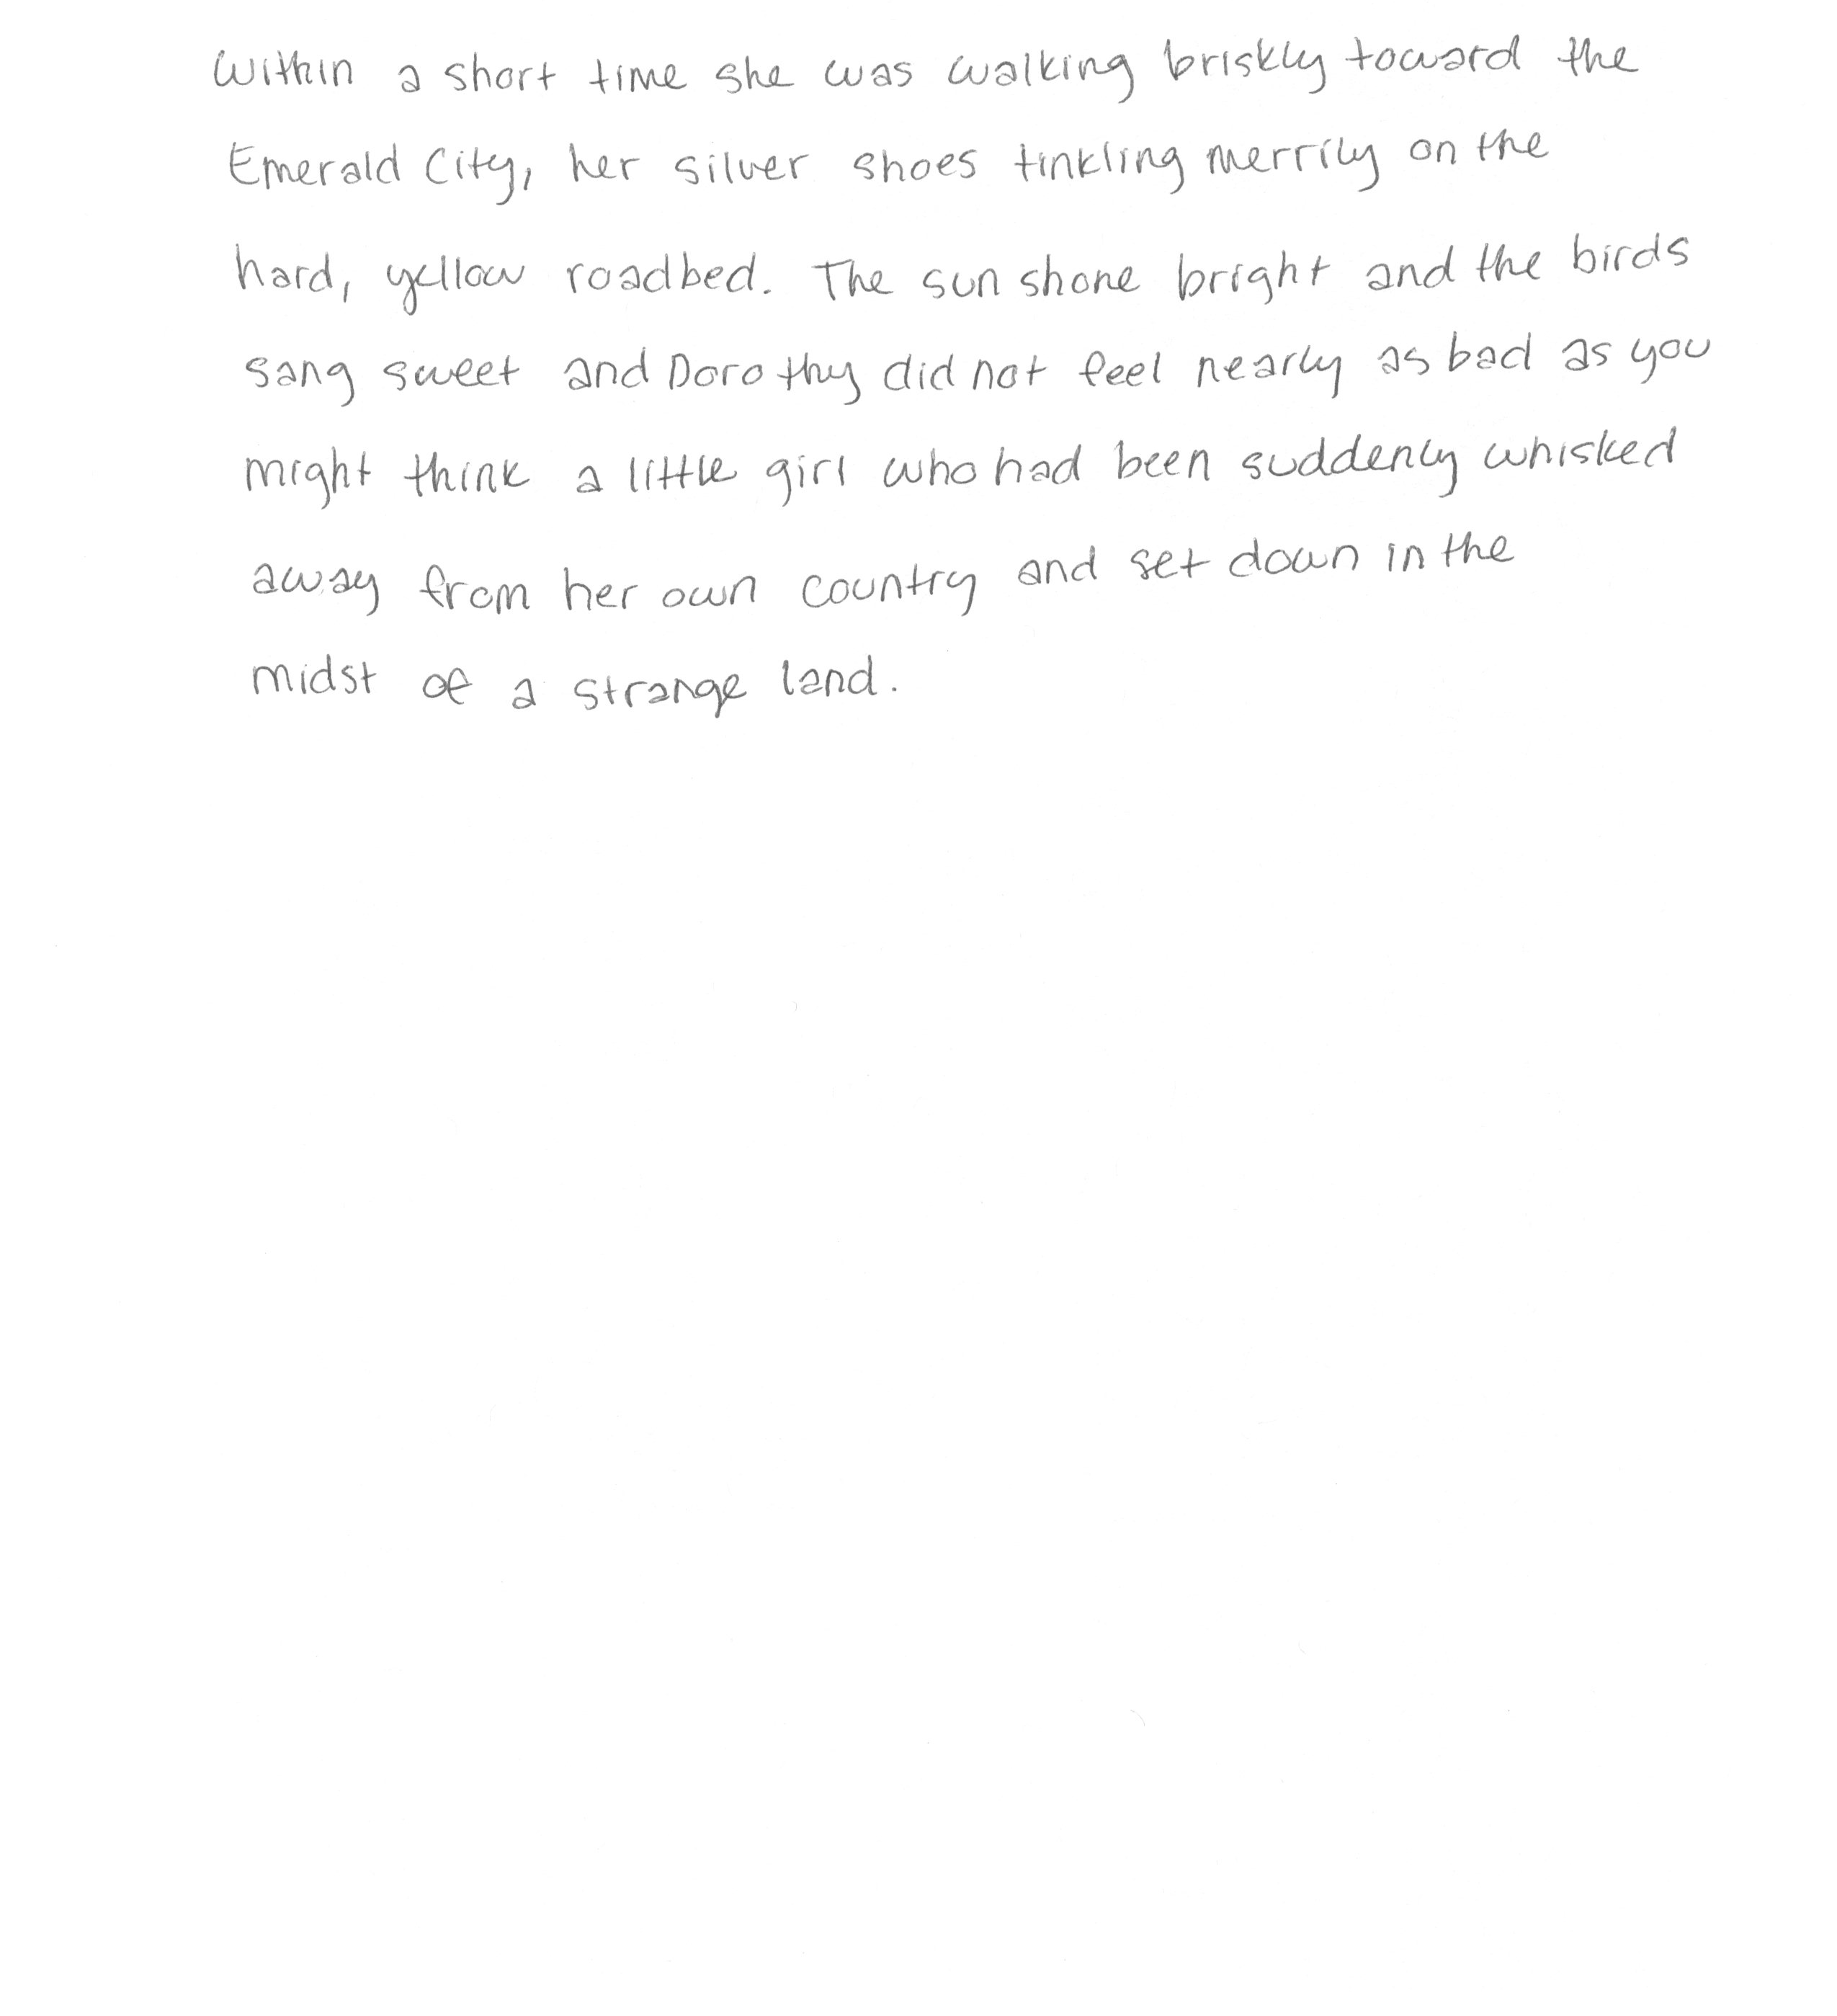 Within a short time she was walking briskly toward the
Emerald City, her silver shoes tinkling merrily on the
hard, yellow roadbed. The sun shone bright and the birds
sang sweet and Dorothy did not feel nearly as bad as you
might think a little girl who had been suddenly whisked
away from her own country and set down in the
midst of a strange land.